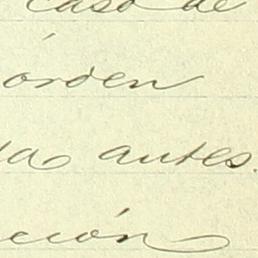 caso de
órden
da antes.
ción